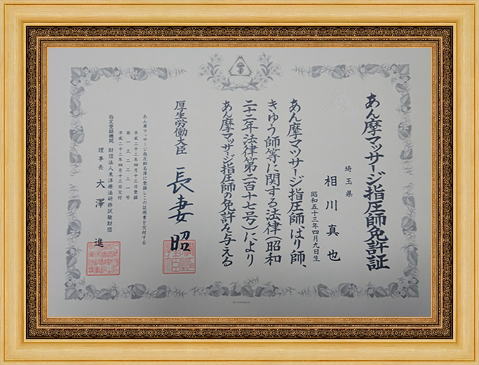 あん摩マッサージ指圧師免許証
埼玉県
相川真也
昭和五十三年四月九日生
あん摩マッサージ指圧師、はり師、
きゆう師等に関する法律(昭和
二十二年法律第二百十七号)により
あん摩マッサージ指圧師の免許を与える
厚生労働大臣 長妻昭
あん摩マッサージ指圧師名簿に登録したことを証明する
指定登録機関 財団法人東洋療法研修試験財団
理事長 大澤 進